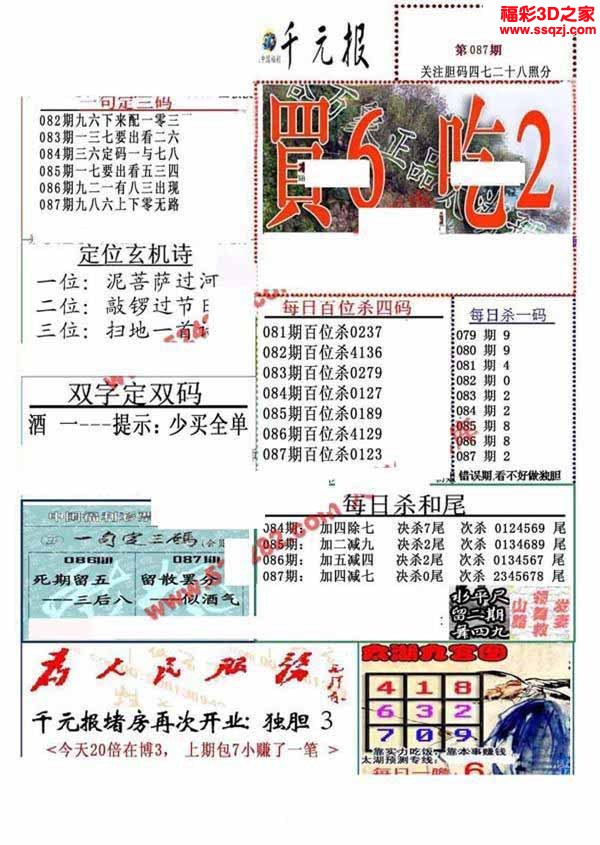 福彩3D之家
www.ssqzj.com
千元报
第087期
关注胆码四七二十八照分
一句定三码
082期九六下来配一零三
083期一三七要出看二六
084期三六定码一与七八
085期一七要出看五三四
086期九二一有八三出现
087期九八六上下零无路
買6吃2
定位玄机诗
一位：泥菩萨过河
二位：敲锣过节日
三位：扫地一首
每日百位杀四码
081期百位杀0237
082期百位杀4136
083期百位杀0279
084期百位杀0127
085期百位杀0189
086期百位杀4129
087期百位杀0123
每日杀一码
079 期 9
080 期 9
081 期 4
082 期 0
083 期 2
084 期 2
085 期 8
086 期 8
087 期 2
错误期,看不好做独胆
双字定双码
酒 一---提示：少买全单
中国福利彩票
一句定三码
086期
死期留五
——三后八
087期
留散罢分
——似酒气
每日杀和尾
084期： 加四除七 决杀7尾 次杀 0124569 尾
085期： 加二减九 决杀2尾 次杀 0134689 尾
086期： 加五减四 决杀2尾 次杀 0134567 尾
087期： 加四减七 决杀0尾 次杀 2345678 尾
水平尺
留二期
舞四九
为人民服务
千元报堵房再次开业：独胆 3
<今天20倍在博3， 上期包7小赚了一笔 >
太湖九宫图
4 1 8
6 3 2
7 0 9
靠实力吃饭，靠本事赚钱
太湖预测专线：
每日一胆 6